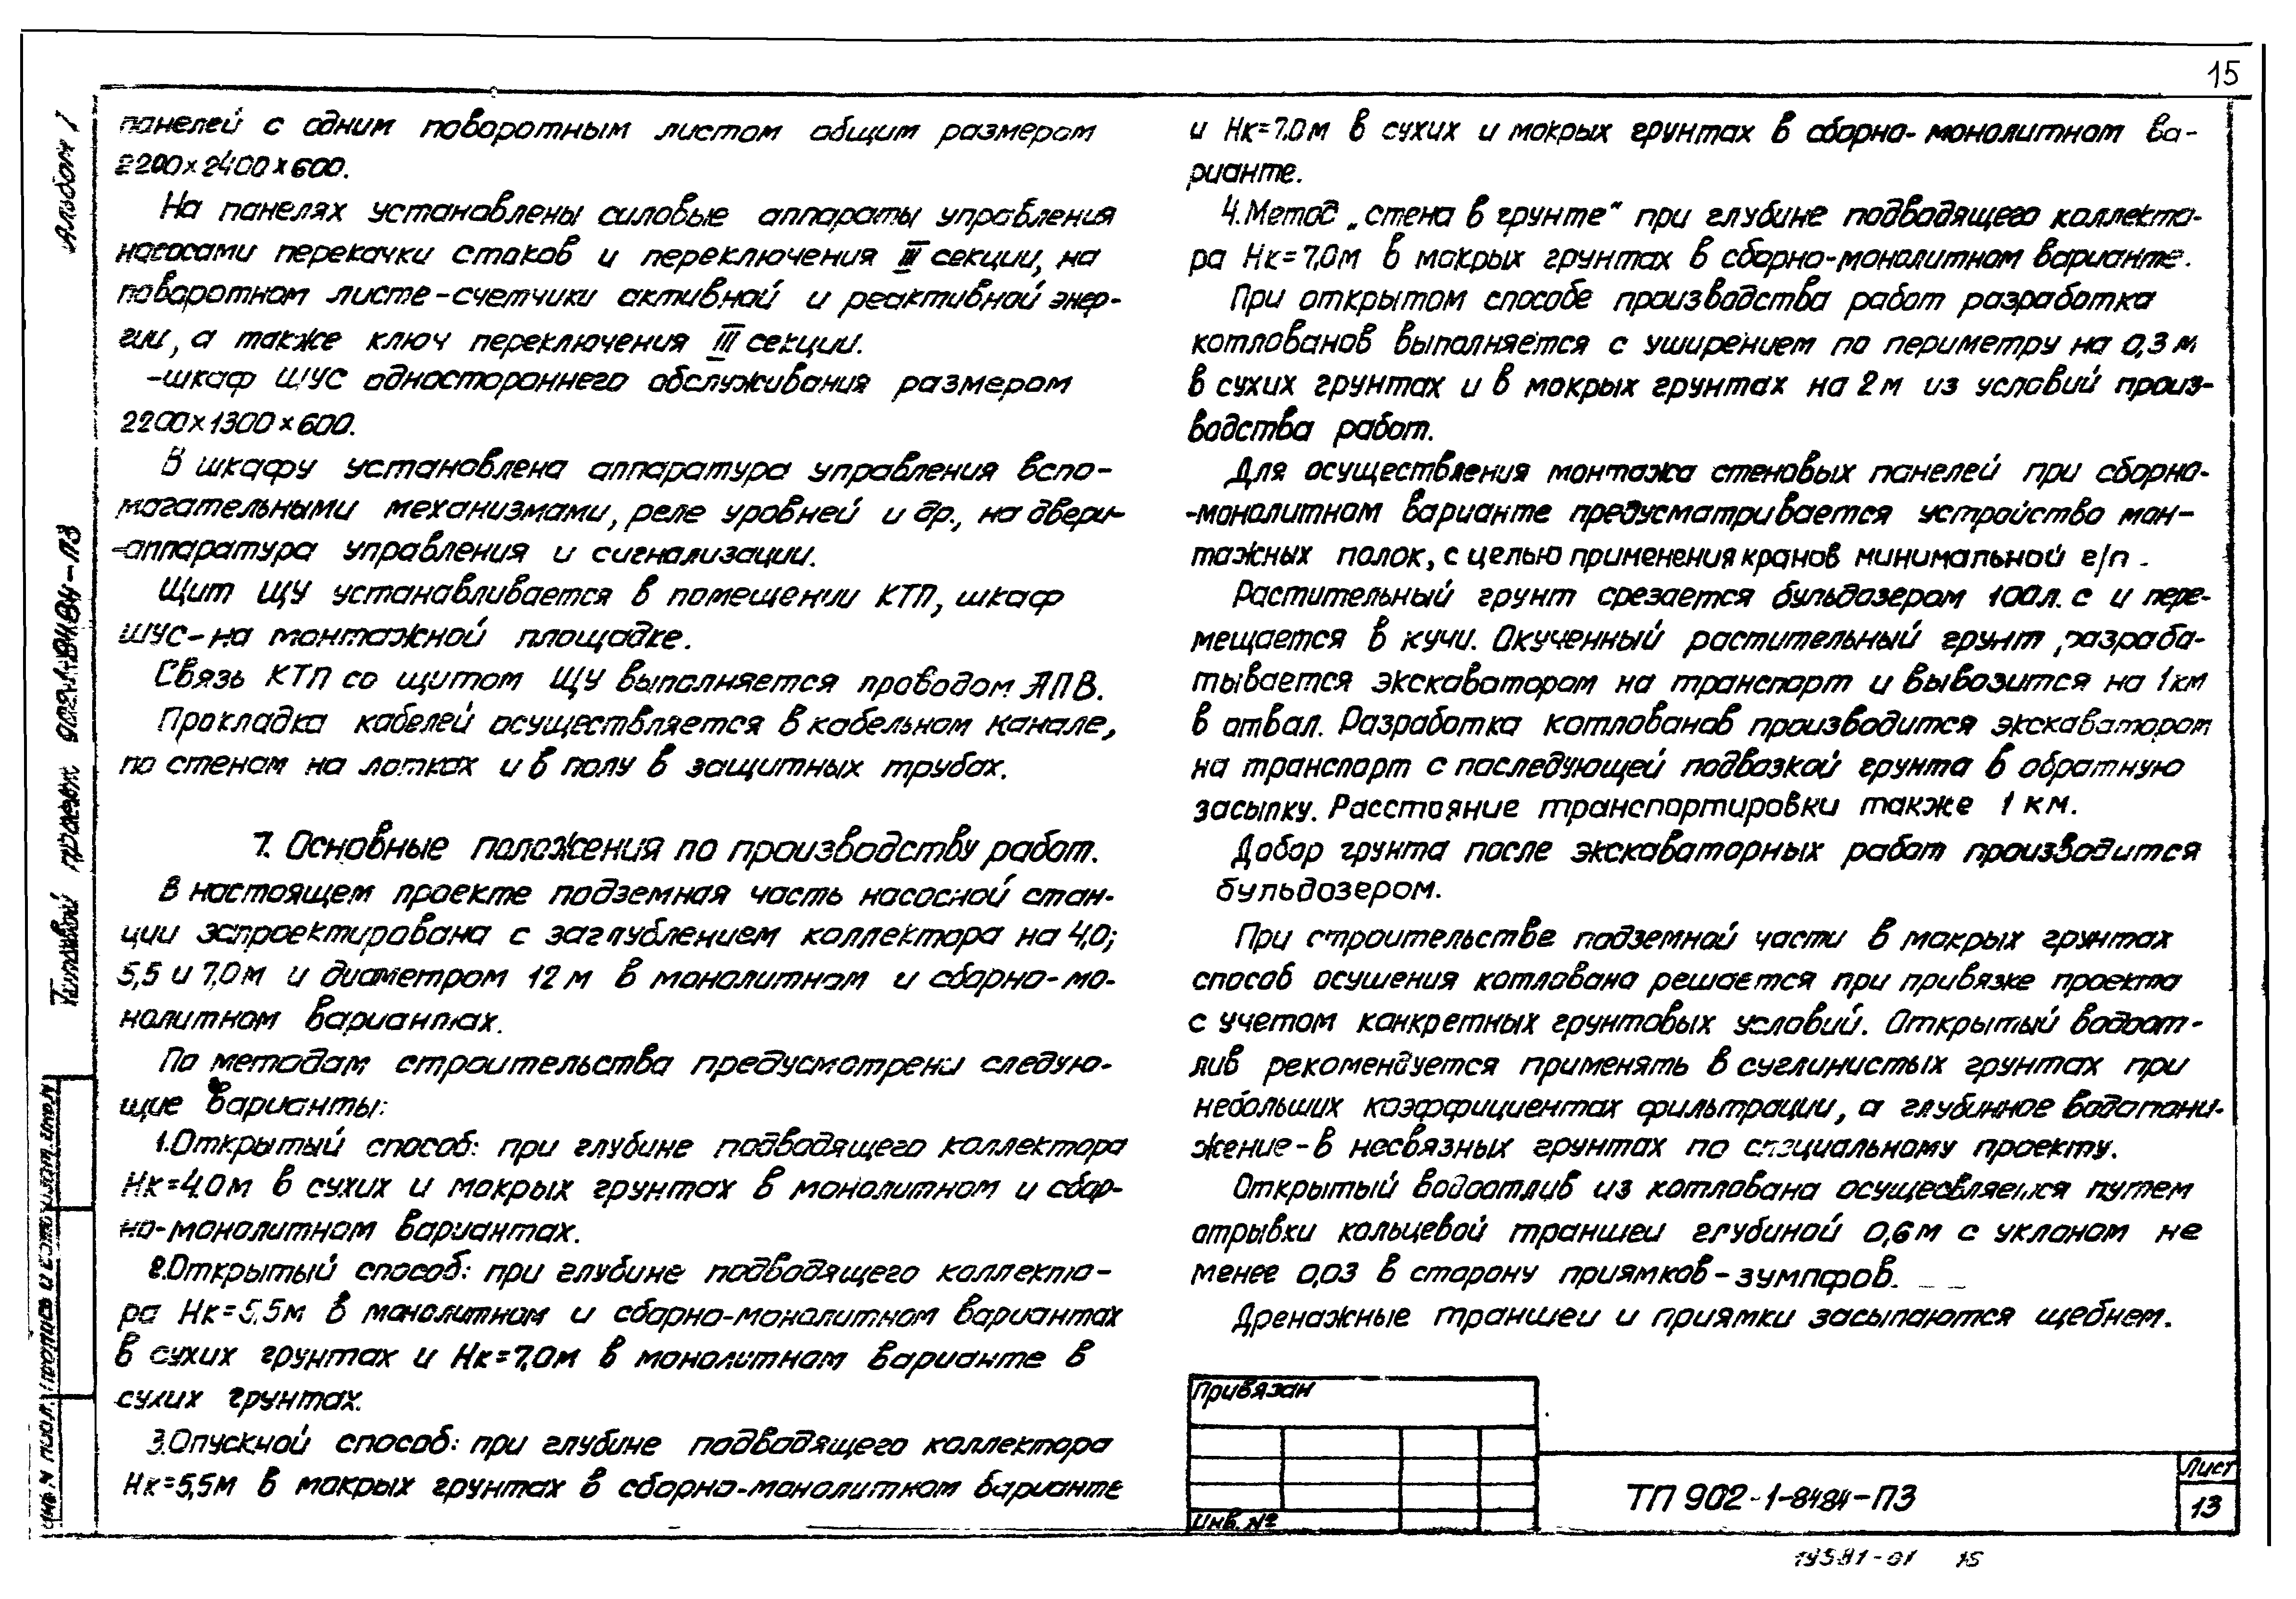 15
панелей с одним поворотным листом общим размером
2200×2400×600.
На панелях установлены силовые аппараты управления
насосами перекачки стоков и переключения III секции, на
поворотном листе-счетчики активной и реактивной энер-
гии, а также ключ переключения III секции.
-шкаф ШУС одностороннего обслуживания размером
2200×1300×600.
В шкафу установлена аппаратура управления вспо-
могательными механизмами, реле уровней и др., на двери-
-аппаратура управления и сигнализации.
Щит ЩУ устанавливается в помещении КТП, шкаф
ШУС-на монтажной площадке.
Связь КТП со щитом ЩУ выполняется проводом АПВ.
Прокладка кабелей осуществляется в кабельном канале,
по стенам на лотках и в полу в защитных трубах.
7. Основные положения по производству работ.
В настоящем проекте подземная часть насосной стан-
ции запроектирована с заглублением коллектора на 4,0;
5,5 и 7,0м и диаметром 12 м в монолитном и сборно-мо-
нолитном вариантах.
По методам строительства предусмотрены следую-
щие варианты:
1.Открытый способ: при глубине подводящего коллектора
Нк=4,0м в сухих и мокрых грунтах в монолитном и сбор-
но-монолитном вариантах.
2.Открытый способ: при глубине подводящего коллекто-
ра Нк=5,5м в монолитном и сборно-монолитном вариантах
в сухих грунтах и Нк=7,0м в монолитном варианте в
сухих грунтах.
3.Опускной способ: при глубине подводящего коллектора
Нк=5,5м в мокрых грунтах в сборно-монолитном варианте
и Нк=7.0м в сухих и мокрых грунтах в сборно-монолитном ва-
рианте.
4.Метод „стена в грунте" при глубине подводящего коллекто-
ра Нк=7,0м в мокрых грунтах в сборно-монолитном варианте.
При открытом способе производства работ разработка
котлованов выполняется с уширением по периметру на 0,3 м
в сухих грунтах и в мокрых грунтах на 2м из условий произ-
водства работ.
Для осуществления монтажа стеновых панелей при сборно-
-монолитном варианте предусматривается устройство мон-
тажных полок, с целью применения кранов минимальной г/п.
Растительный грунт срезается бульдозером 100л.с и пере-
мещается в кучи. Окученный растительный грунт разраба-
тывается экскаватором на транспорт и вывозится на 1км
в отвал. Разработка котлованов производится экскаватором
на транспорт с последующей подвозкой грунта в обратную
засыпку. Расстояние транспортировки также 1 км.
Добор грунта после экскаваторных работ производится
бульдозером.
При строительстве подземной части в мокрых грунтах
способ осушения котлована решается при привязке проекта
с учетом конкретных грунтовых условий. Открытый водоот-
лив рекомендуется применять в суглинистых грунтах при
небольших коэффициентах фильтрации, а глубинное водопони-
жение-в несвязных грунтах по специальному проекту.
Открытый водоотлив из котлована осуществляется путем
отрывки кольцевой траншеи глубиной 0,6м с уклоном не
менее 0,03 в сторону приямков-зумпфов.
Дренажные траншеи и приямки засыпаются щебнем.
Привязан
Инв. №
ТП 902-1-84.84-ПЗ
Лист
13
19581-01 15
Альбом I
Типовой проект 902-1-84.84-ПЗ
Инв. № подл. Подпись и дата Взам. инв. №